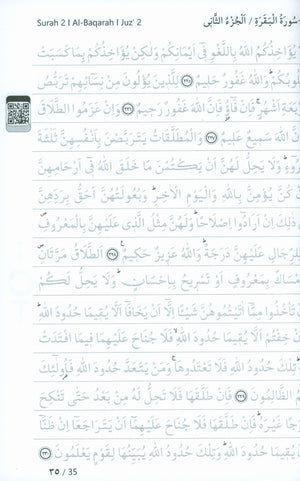 Surah 2 I Al-Baqarah I Juz' 2
سُورَةُ الْبَقَرَةِ / اَلْجُزْءُ الثَّانِى
يُؤَاخِذُكُمُ اللّٰهُ بِاللَّغْوِ فِىٓ اَيْمَانِكُمْ وَلٰكِنْ يُؤَاخِذُكُمْ بِمَا كَسَبَتْ
بُكُمْ وَاللّٰهُ غَفُورٌ حَلِيمٌ ﴿٢٢٥﴾ لِلَّذِينَ يُؤْلُونَ مِنْ نِسَائِهِمْ تَرَبُّصُ
بَعَةِ اَشْهُرٍ فَاِنْ فَاؤُ فَاِنَّ اللّٰهَ غَفُورٌ رَحِيمٌ ﴿٢٢٦﴾ وَاِنْ عَزَمُوا الطَّلَاقَ
نَّ اللّٰهَ سَمِيعٌ عَلِيمٌ ﴿٢٢٧﴾ وَالْمُطَلَّقَاتُ يَتَرَبَّصْنَ بِاَنْفُسِهِنَّ ثَلٰثَةَ
رُوءٍ وَلَا يَحِلُّ لَهُنَّ اَنْ يَكْتُمْنَ مَا خَلَقَ اللّٰهُ فِىٓ اَرْحَامِهِنَّ
نْ كُنَّ يُؤْمِنَّ بِاللّٰهِ وَالْيَوْمِ الْاٰخِرِ وَبُعُولَتُهُنَّ اَحَقُّ بِرَدِّهِنَّ
ى ذٰلِكَ اِنْ اَرَادُوٓا اِصْلَاحًا وَلَهُنَّ مِثْلُ الَّذِى عَلَيْهِنَّ بِالْمَعْرُوفِ
لِلرِّجَالِ عَلَيْهِنَّ دَرَجَةٌ وَاللّٰهُ عَزِيزٌ حَكِيمٌ ﴿٢٢٨﴾ اَلطَّلَاقُ مَرَّتَانِ
مْسَاكٌ بِمَعْرُوفٍ اَوْ تَسْرِيحٌ بِاِحْسَانٍ وَلَا يَحِلُّ لَكُمْ
نْ تَأْخُذُوا مِمَّٓا اٰتَيْتُمُوهُنَّ شَيْئًا اِلَّٓا اَنْ يَخَافَٓا اَلَّا يُقِيمَا حُدُودَ اللّٰهِ
نْ خِفْتُمْ اَلَّا يُقِيمَا حُدُودَ اللّٰهِ فَلَا جُنَاحَ عَلَيْهِمَا فِيمَا افْتَدَتْ
تِلْكَ حُدُودُ اللّٰهِ فَلَا تَعْتَدُوهَا وَمَنْ يَتَعَدَّ حُدُودَ اللّٰهِ فَاُولٰٓئِكَ
مُ الظَّالِمُونَ ﴿٢٢٩﴾ فَاِنْ طَلَّقَهَا فَلَا تَحِلُّ لَهُ مِنْ بَعْدُ حَتّٰى تَنْكِحَ
وْجًا غَيْرَهُ فَاِنْ طَلَّقَهَا فَلَا جُنَاحَ عَلَيْهِمَٓا اَنْ يَتَرَاجَعَٓا اِنْ ظَنَّٓا
نْ يُقِيمَا حُدُودَ اللّٰهِ وَتِلْكَ حُدُودُ اللّٰهِ يُبَيِّنُهَا لِقَوْمٍ يَعْلَمُونَ ﴿٢٣٠﴾
٣٥ / 35